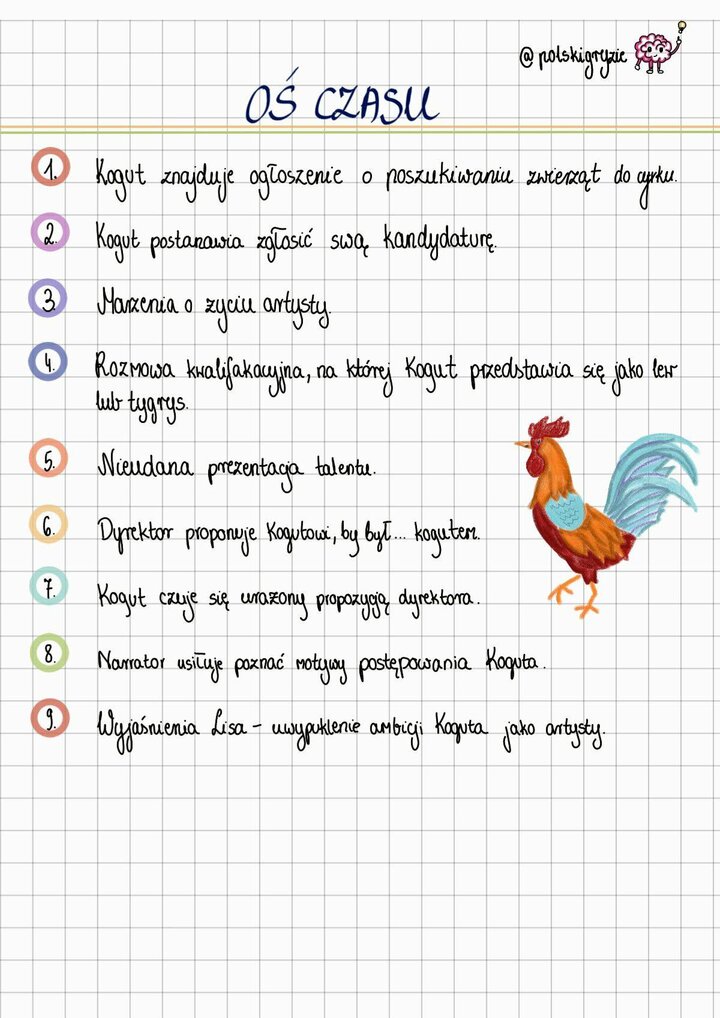 @polskigryzie
OŚ CZASU
1. Kogut znajduje ogłoszenie o poszukiwaniu zwierząt do cyrku.
2. Kogut postanawia zgłosić swą kandydaturę.
3. Marzenia o życiu artysty.
4. Rozmowa kwalifakacyjna, na której Kogut przedstawia się jako lew
lub tygrys.
5. Nieudana prezentacja talentu.
6. Dyrektor proponuje Kogutowi, by był... kogutem.
7. Kogut czuje się urażony propozycją dyrektora.
8. Narrator usiłuje poznać motywy postępowania Koguta.
9. Wyjaśnienia Lisa - uwypuklenie ambicji Koguta jako artysty.